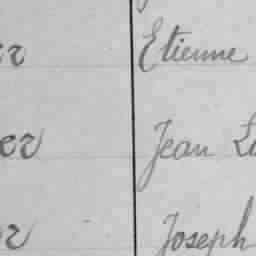 er Etienne
er Jean
er Joseph